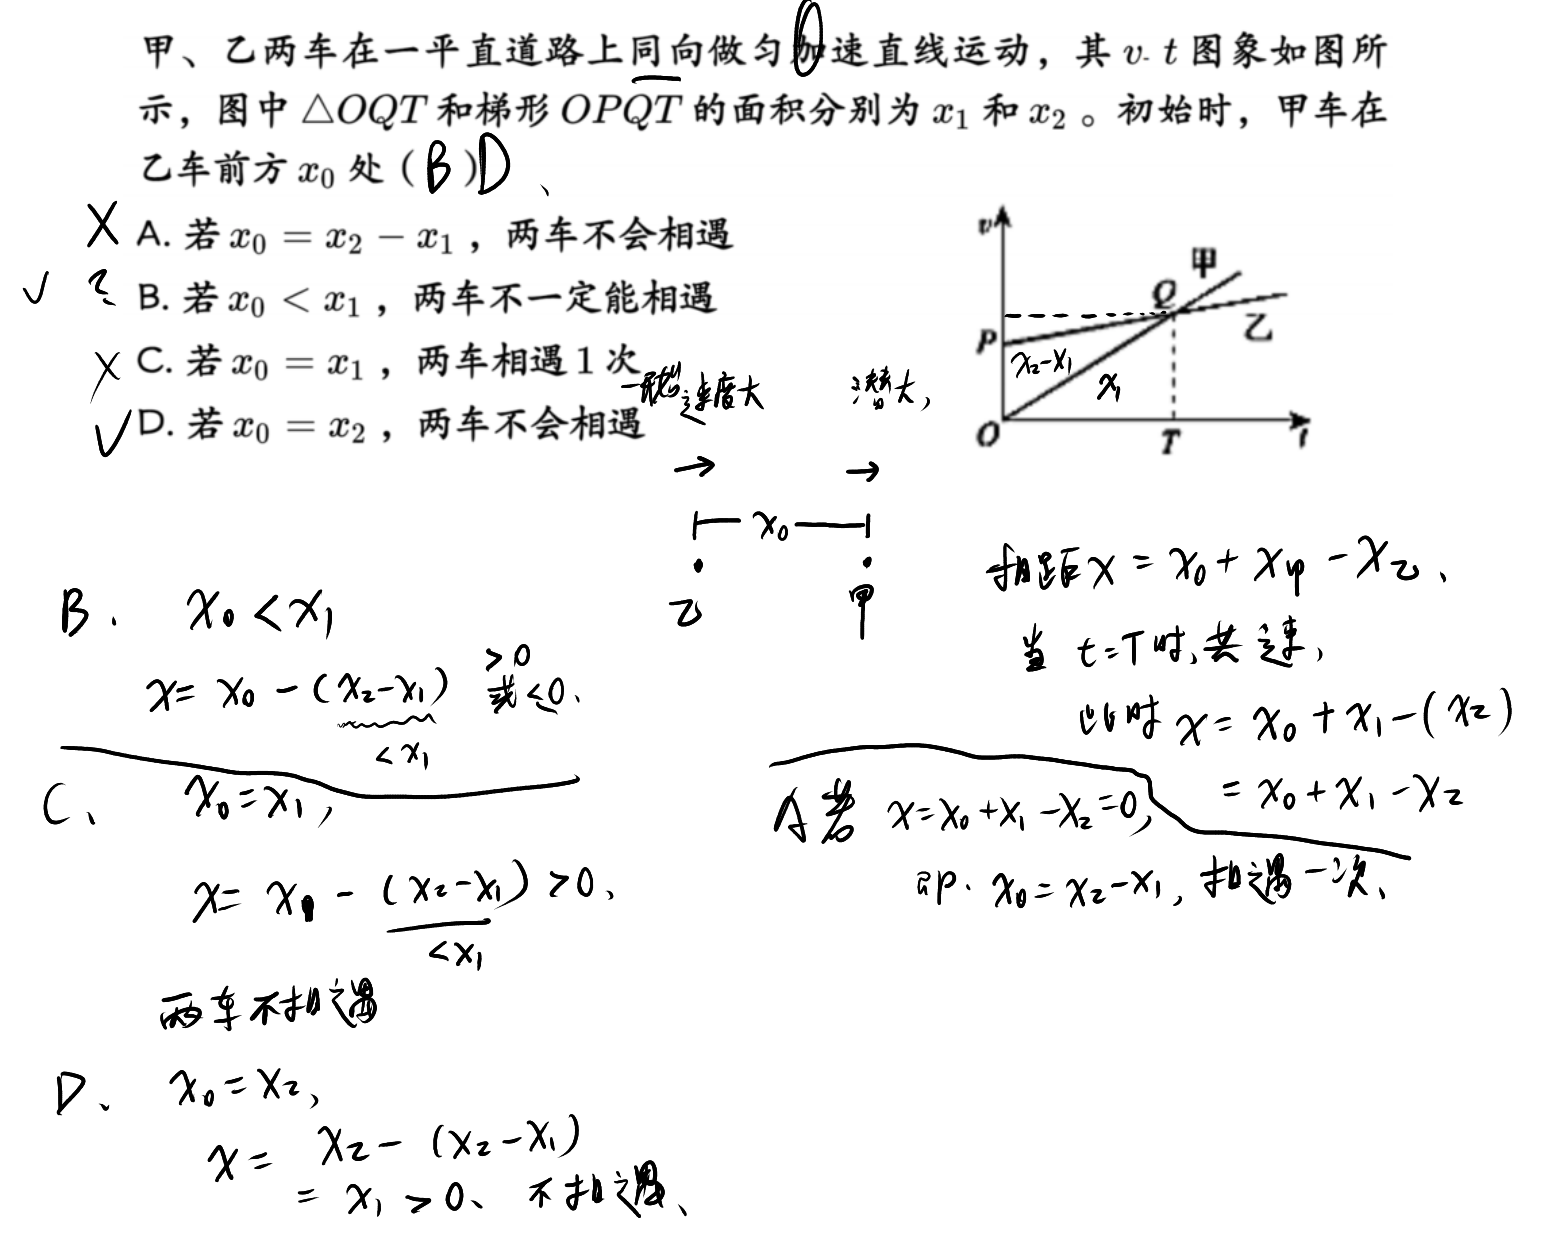 甲、乙两车在一平直道路上同向做匀加速直线运动，其 v-t 图象如图所
示，图中 △OQT 和梯形 OPQT 的面积分别为 x₁ 和 x₂ 。初始时，甲车在
乙车前方 x₀ 处（ B ）D、
× A. 若 x₀ = x₂ − x₁ ，两车不会相遇
√ ? B. 若 x₀ < x₁ ，两车不一定能相遇
× C. 若 x₀ = x₁ ，两车相遇 1 次
√ D. 若 x₀ = x₂ ，两车不会相遇
v
甲
Q
乙
P
x₂-x₁
x₁
O
T
t
一开始速度大
潜大，
→ →
x₀
乙 甲
相距 x = x₀ + x甲 - x乙、
当 t=T时,共速,
此时 x = x₀ + x₁ - (x₂)
= x₀ + x₁ - x₂
A 若 x=x₀+x₁-x₂=0,
即. x₀=x₂-x₁, 相遇一次、
B. x₀<x₁
x= x₀ - (x₂-x₁) >0 或<0、
<x₁
C、 x₀=x₁,
x= x₁ - (x₂-x₁) >0、
<x₁
两车不相遇
D、 x₀=x₂,
x= x₂- (x₂-x₁)
= x₁ >0、 不相遇、